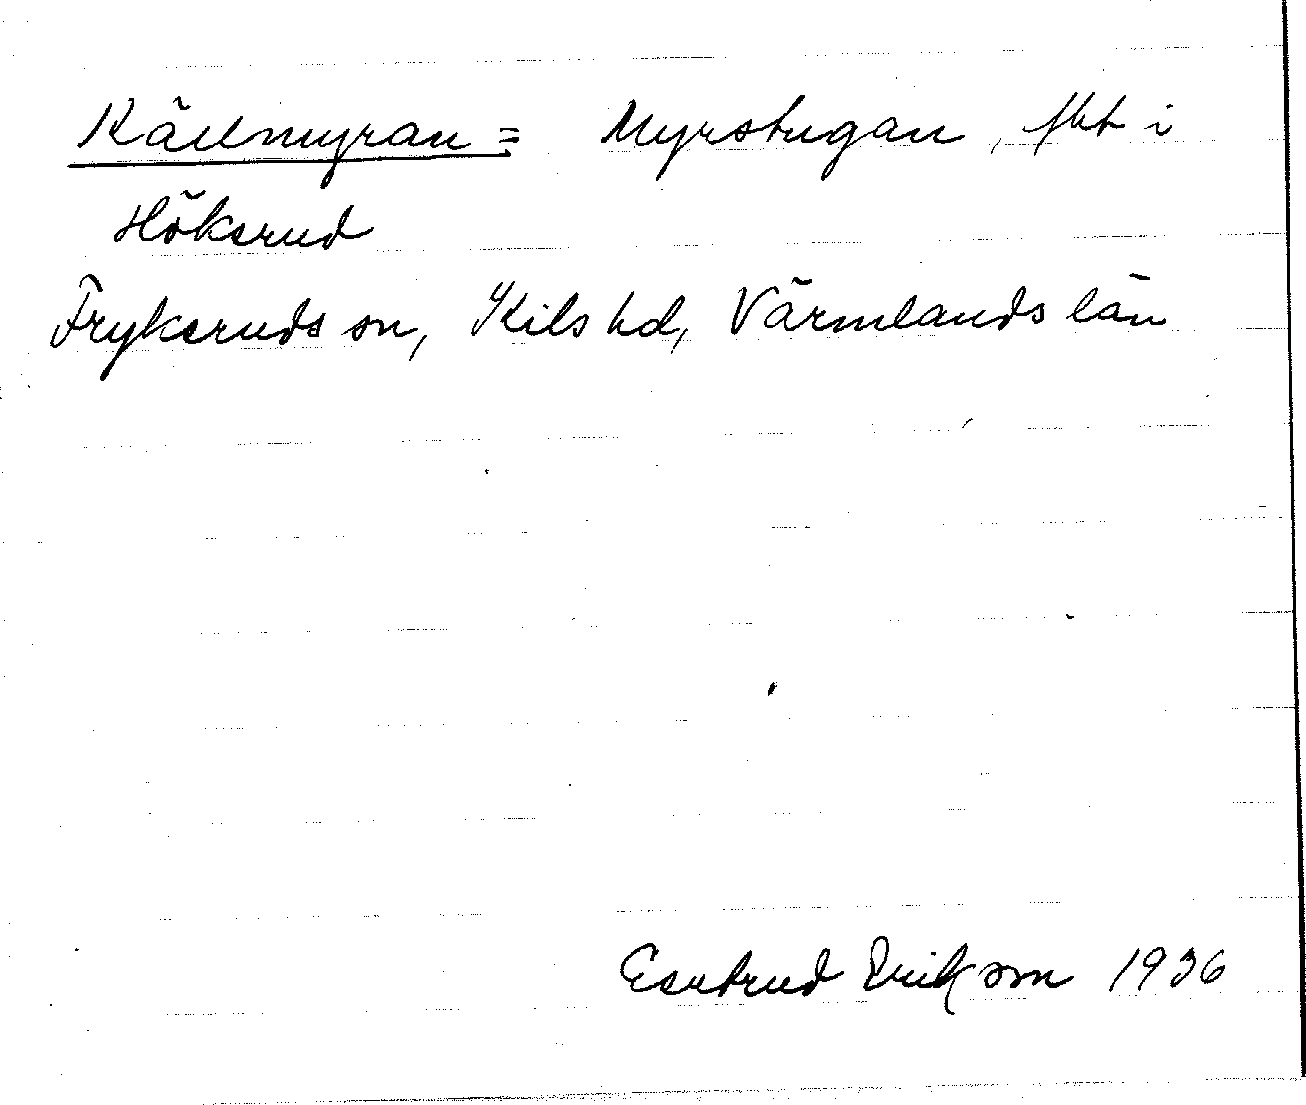 Källmyran = Myrstugan, fht i
Höksrud
Frykeruds sn, Kils hd, Värmlands län
Gertrud Erikson 1936